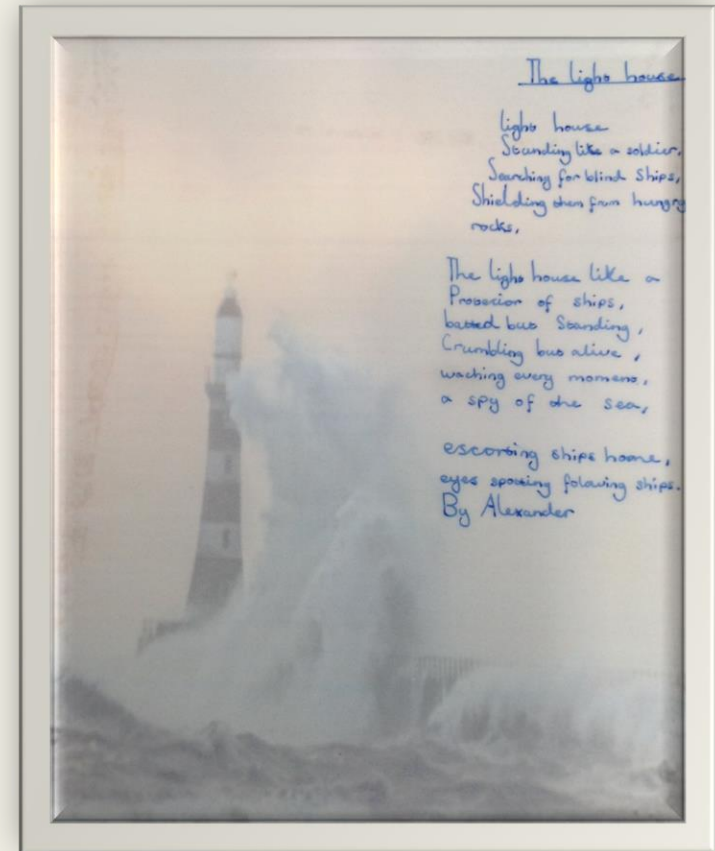 The light house
light house
Standing like a soldier,
Searching for blind Ships,
Shielding them from hungry
rocks,
The light house like a
Protector of ships,
batted but Standing,
Crumbling but alive,
waching every moment,
a spy of the sea,
escorting ships home,
eyes spotting folowing ships.
By Alexander